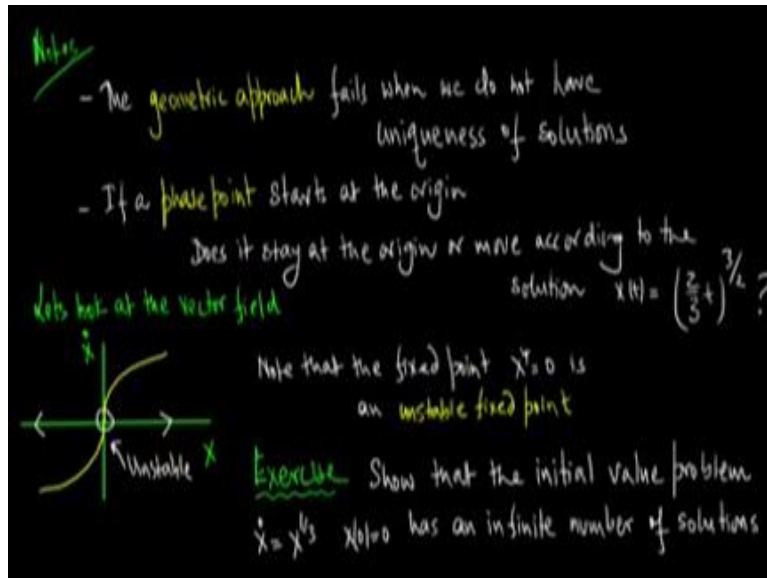 Notes
- The geometric approach fails when we do not have
uniqueness of solutions
- If a phase point starts at the origin
Does it stay at the origin or move according to the
solution x(t) = (2/3 t)^3/2 ?
Lets look at the vector field
ẋ
Note that the fixed point x* = 0 is
an unstable fixed point
Unstable
x
Exercise Show that the initial value problem
ẋ = x^1/3 x(0)=0 has an infinite number of solutions